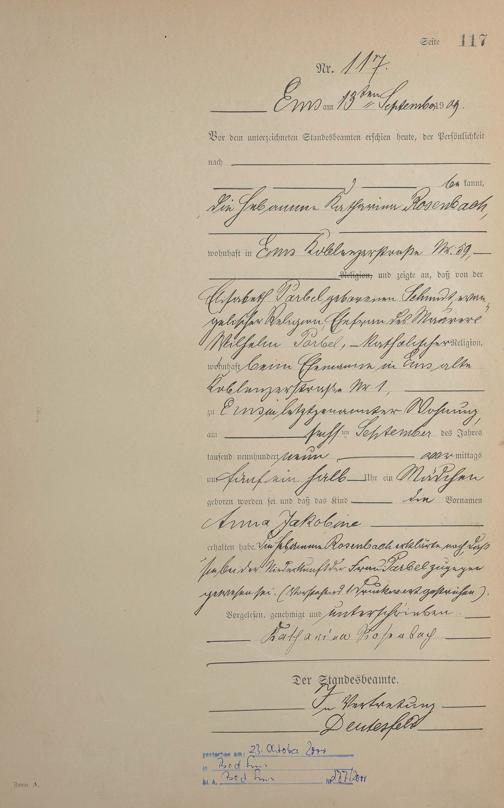 Seite 117
Nr. 117.
Ems am 13ten September 1909.
Vor dem unterzeichneten Standesbeamten erschien heute, der Persönlichkeit
nach
be kannt,
die Hebamme Katharina Rosenbach,
wohnhaft in Ems Koblenzerstraße Nr. 59,
Religion, und zeigte an, daß von der
Elisabeth Parbel geborenen Schmidt, evan-
gelischer Religion, Ehefrau des Maurers
Wilhelm Parbel, katholischer Religion,
wohnhaft beim Ehemanne in Ems alte
Koblenzerstraße Nr. 1,
zu Ems in letztgenannter Wohnung,
am September des Jahres
tausend neunhundert neun vor mittags
um fünf ein halb Uhr ein Mädchen
geboren worden sei und daß das Kind die Vornamen
Anna Jakobine
erhalten habe. Die Hebamme Rosenbach erklärte noch, daß
sie bei der Niederkunft der Frau Parbel zugegen
gewesen sei. (Vorstehend 1 Druckwort gestrichen).
Vorgelesen, genehmigt und unterschrieben
Katharina Rosenbach
Der Standesbeamte.
In Vertretung
Deutesfeld
gestorben am: 23. Oktober
in Bad Ems
St. A. Bad Ems Nr.
Form A.